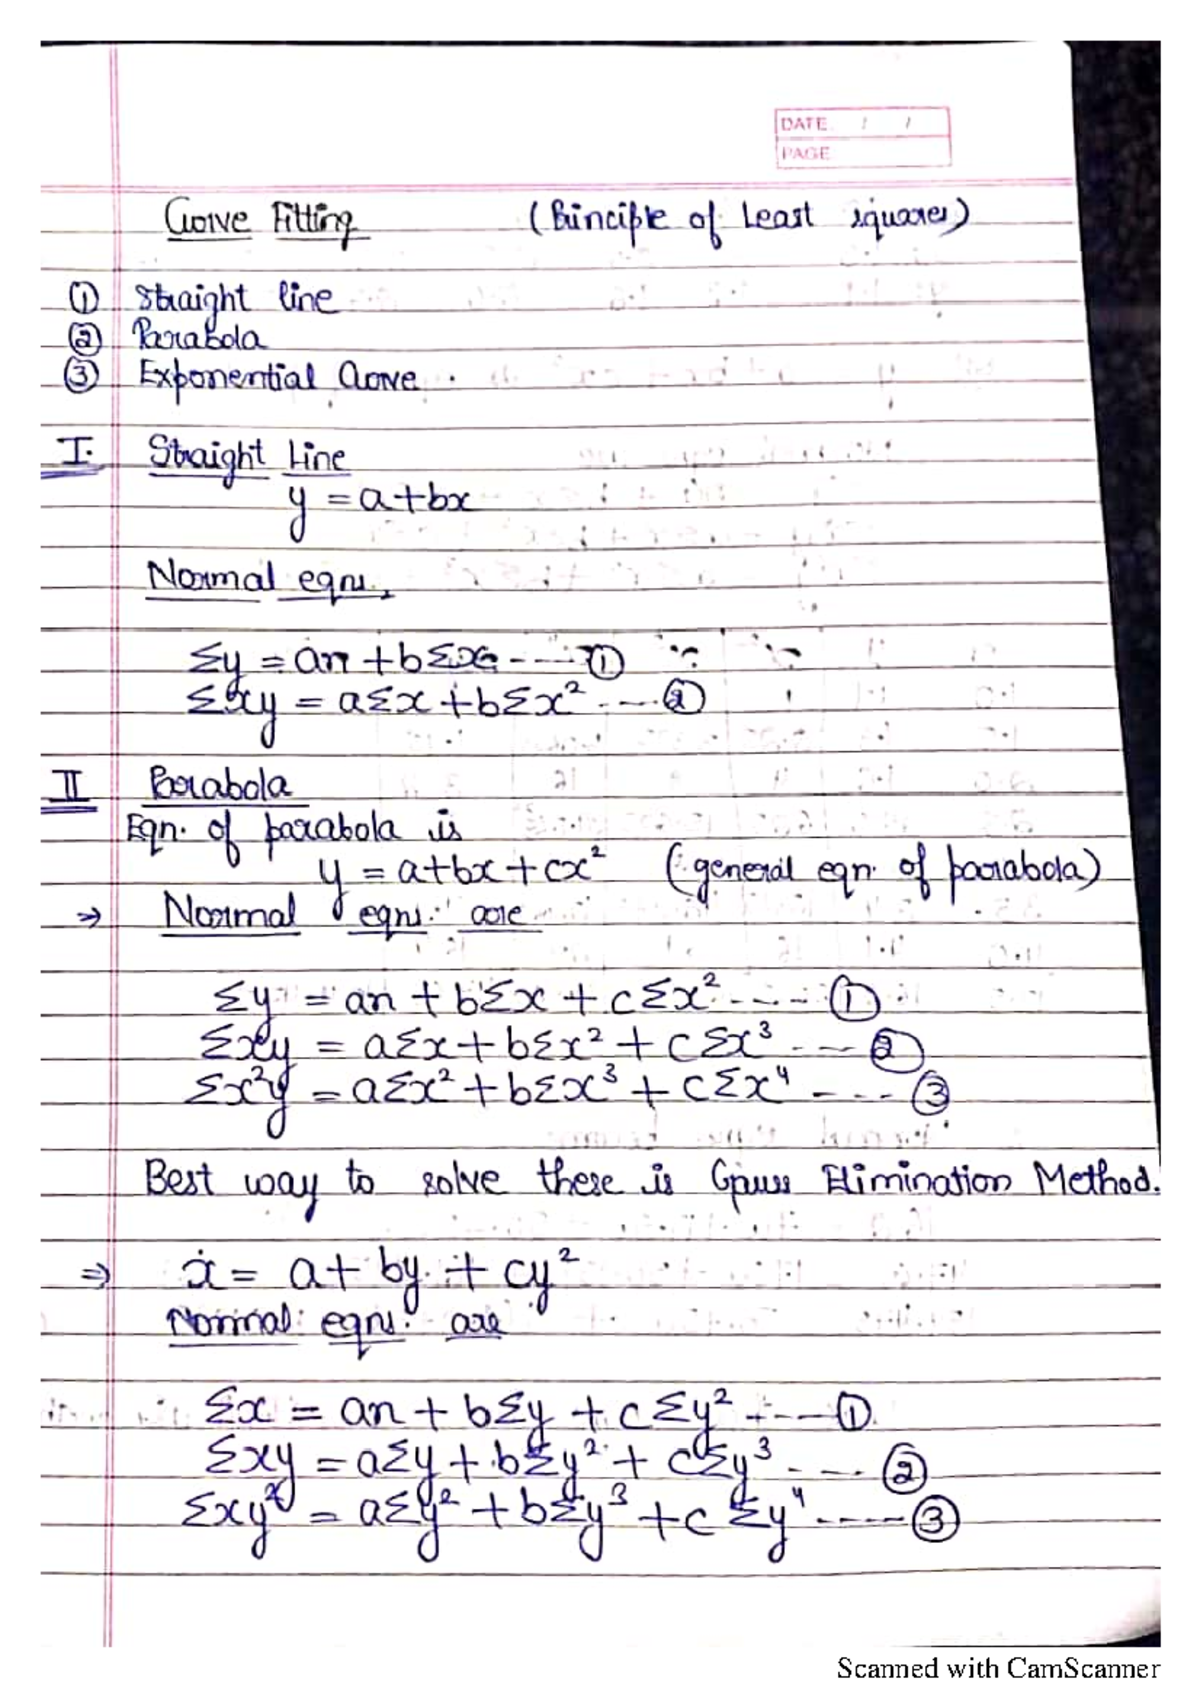 DATE / /
PAGE
Curve Fitting (Principle of Least squares)
① Straight line
② Parabola
③ Exponential Curve.
I. Straight Line
y = a+bx
Normal eqns,
Σy = an + bΣx ----①
Σxy = aΣx + bΣx² ----②
II Parabola
Eqn. of parabola is
y = a+bx+cx² (general eqn. of parabola)
⇒ Normal eqns. are
Σy = an + bΣx + cΣx² ---- ①
Σxy = aΣx + bΣx² + cΣx³ ---- ②
Σx²y = aΣx² + bΣx³ + cΣx⁴ ---- ③
Best way to solve these is Gauss Elimination Method.
⇒ x = a + by + cy²
Normal eqns. are
Σx = an + bΣy + cΣy² ---- ①
Σxy = aΣy + bΣy² + cΣy³ ---- ②
Σxy² = aΣy² + bΣy³ + cΣy⁴ ----- ③
Scanned with CamScanner